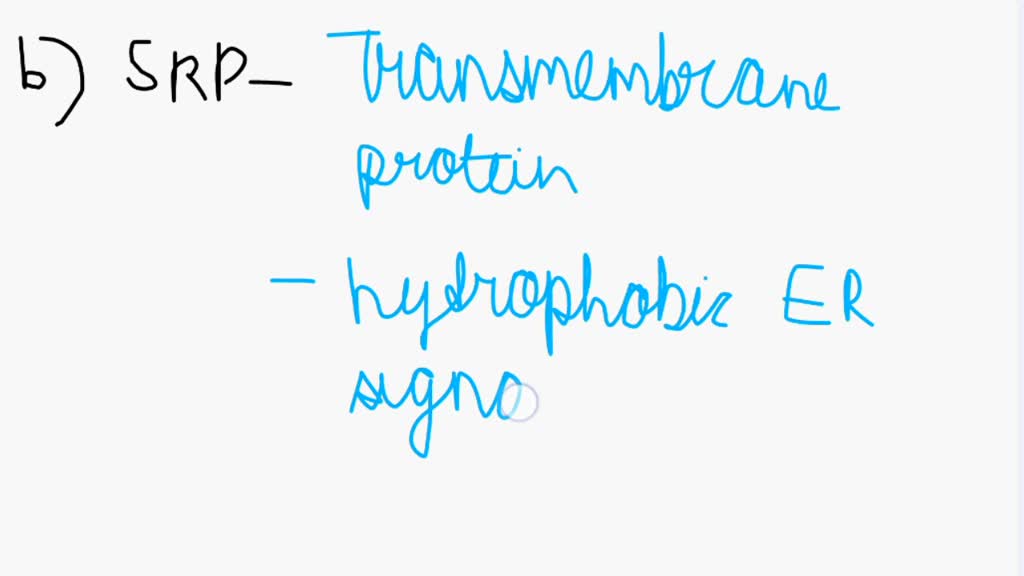 b) SRP - Transmembrane
protein
- hydrophobic ER
signa